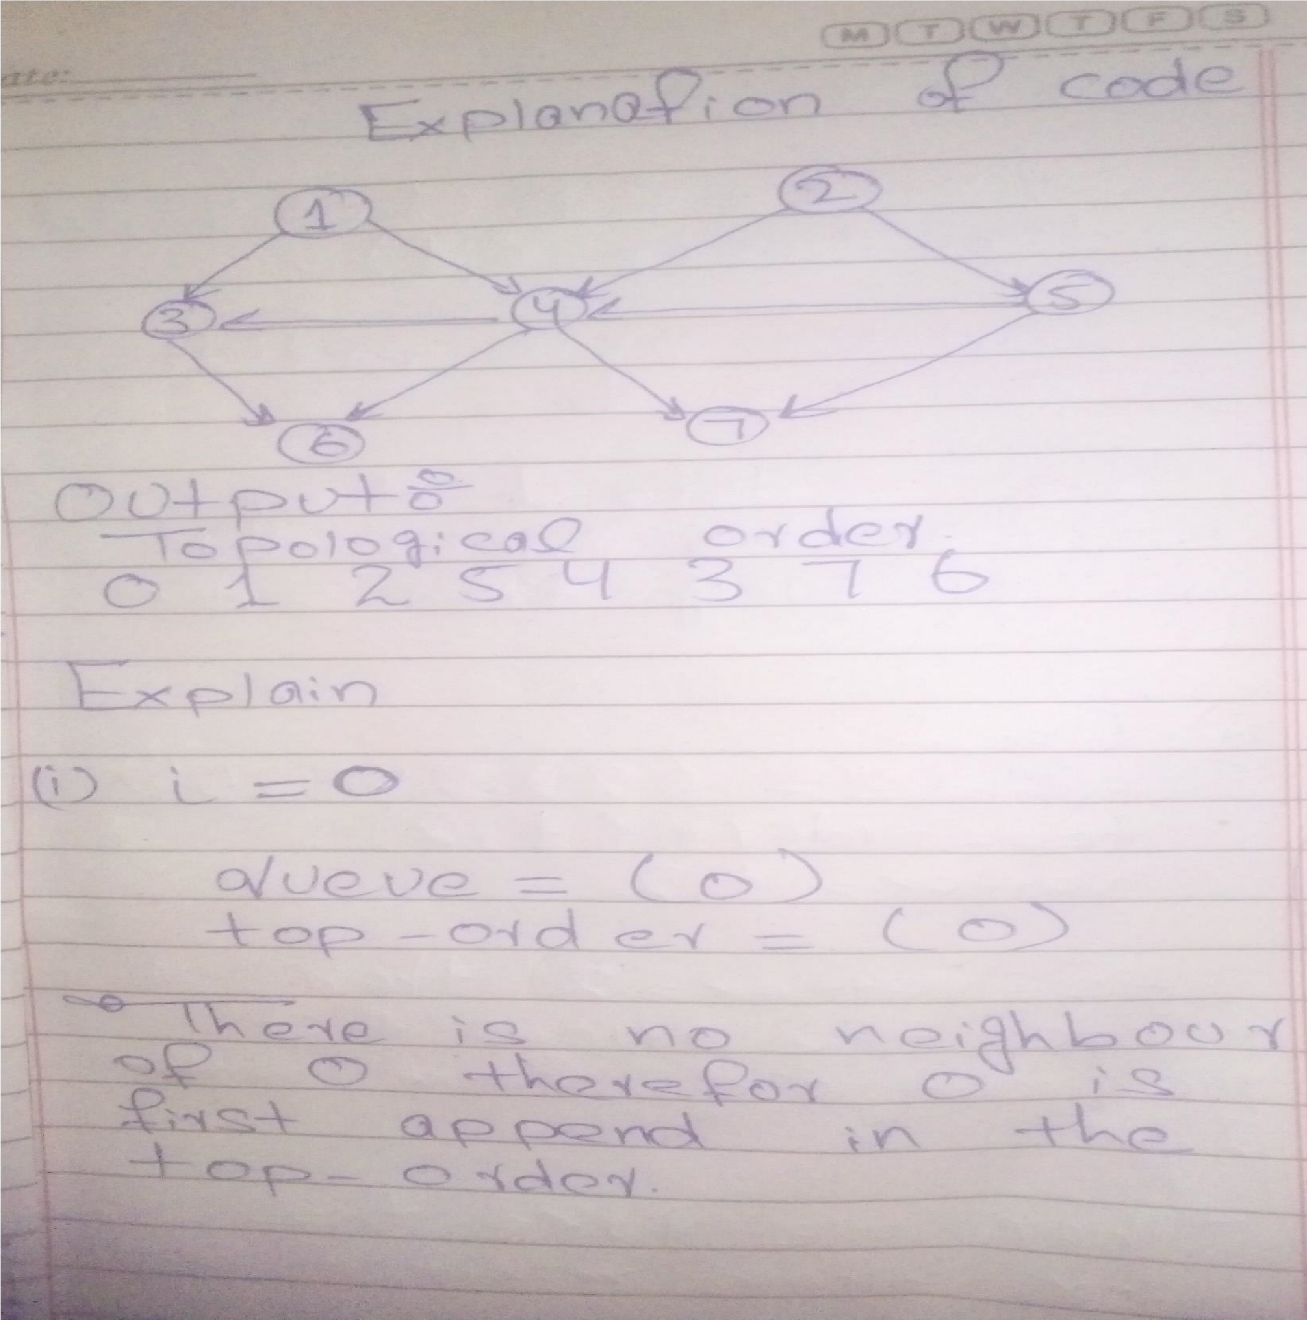 M T W T F S
ate:
Explanation of code
1 2
3 4 5
6 7
Output:
Topological order.
0 1 2 5 4 3 7 6
Explain
(i) i = 0
queue = (0)
top-order = (0)
There is no neighbour
of 0 therefor 0 is
first append in the
top-order.